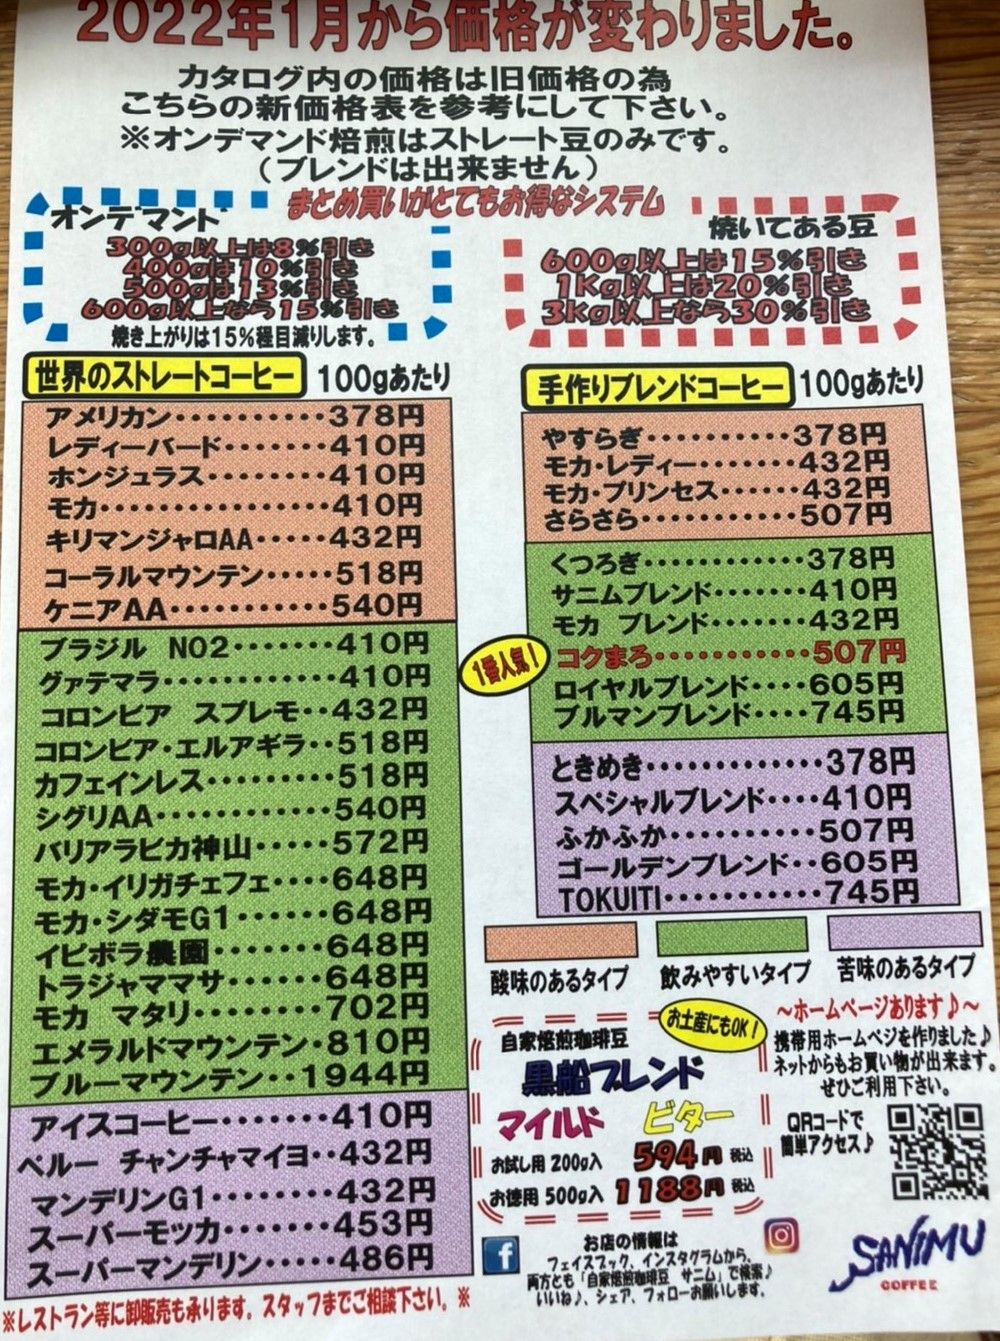 2022年1月から価格が変わりました。
カタログ内の価格は旧価格の為
こちらの新価格表を参考にして下さい。
※オンデマンド焙煎はストレート豆のみです。
（ブレンドは出来ません）
まとめ買いがとてもお得なシステム
オンデマンド
300g以上は8%引き
400gは10%引き
500gは13%引き
600g以上なら15%引き
焼き上がりは15%程目減りします。
焼いてある豆
600g以上は15%引き
1Kg以上は20%引き
3kg以上なら30%引き
世界のストレートコーヒー 100gあたり
アメリカン・・・・・・・・・・378円
レディーバード・・・・・・・410円
ホンジュラス・・・・・・・・410円
モカ・・・・・・・・・・・・・・410円
キリマンジャロAA・・・・・432円
コーラルマウンテン・・・・・518円
ケニアAA・・・・・・・・・・・540円
ブラジル NO2・・・・・・・410円
グァテマラ・・・・・・・・・・・410円
コロンビア スプレモ・・432円
コロンビア・エルアギラ・・518円
カフェインレス・・・・・・・・・518円
シグリAA・・・・・・・・・・・・540円
バリアラビカ神山・・・・・572円
モカ・イリガチェフェ・・・・648円
モカ・シダモG1・・・・・・648円
イピボラ農園・・・・・・・648円
トラジャママサ・・・・・・648円
モカ マタリ・・・・・・・・702円
エメラルドマウンテン・810円
ブルーマウンテン・・1944円
アイスコーヒー・・・・・・410円
ペルー チャンチャマイヨ・・432円
マンデリンG1・・・・・・・・432円
スーパーモッカ・・・・・・・453円
スーパーマンデリン・・・・486円
※レストラン等に卸販売も承ります。スタッフまでご相談下さい。※
手作りブレンドコーヒー 100gあたり
やすらぎ・・・・・・・・・・378円
モカ・レディー・・・・・・・432円
モカ・プリンセス・・・・・・432円
さらさら・・・・・・・・・・・507円
くつろぎ・・・・・・・・・・・・378円
サニムブレンド・・・・・・・410円
モカ ブレンド・・・・・・・・432円
1番人気！
コクまろ・・・・・・・・・・・・507円
ロイヤルブレンド・・・・605円
ブルマンブレンド・・・・745円
ときめき・・・・・・・・・・・・・378円
スペシャルブレンド・・・・410円
ふかふか・・・・・・・・・・・507円
ゴールデンブレンド・・605円
TOKUITI・・・・・・・・・・・745円
酸味のあるタイプ
飲みやすいタイプ
苦味のあるタイプ
お土産にもOK！
自家焙煎珈琲豆
黒船ブレンド
マイルド ビター
お試し用 200g入 594円 税込
お徳用 500g入 1188円 税込
～ホームページあります♪～
携帯用ホームペジを作りました♪
ネットからもお買い物が出来ます。
ぜひご利用下さい。
QRコードで
簡単アクセス♪
f
お店の情報は
フェイスブック、インスタグラムから、
両方とも「自家焙煎珈琲豆 サニム」で検索♪
いいね♪、シェア、フォローお願いします。
SANIMU
COFFEE